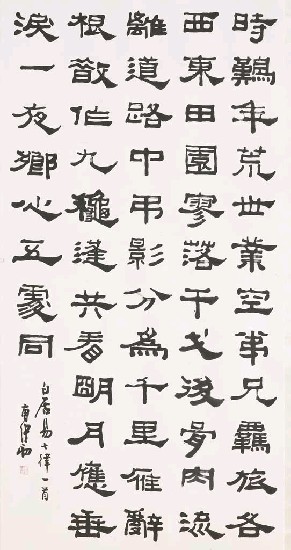 時難年荒世業空弟兄羈旅各
西東田園寥落干戈後骨肉流
離道路中弔影分為千里雁辭
根散作九龝蓬共看明月應垂
淚一夜鄉心五處同
白居易七律一首